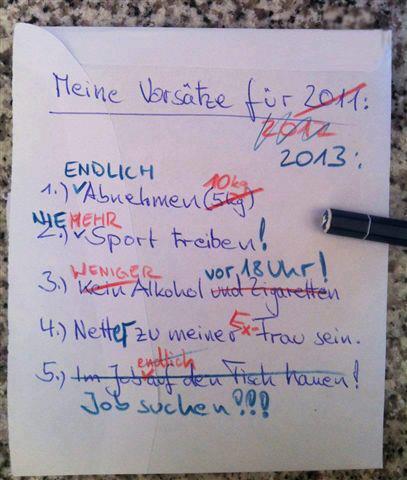 Meine Vorsätze für 2011:
2012
2013:
ENDLICH
10kg
1.) Abnehmen (5kg)
NIE MEHR
2.) Sport treiben!
WENIGER vor 18 Uhr!
3.) Kein Alkohol und Zigaretten
4.) Netter zu meiner Ex-Frau sein.
endlich
5.) Im Job auf den Tisch hauen!
Job suchen!!!